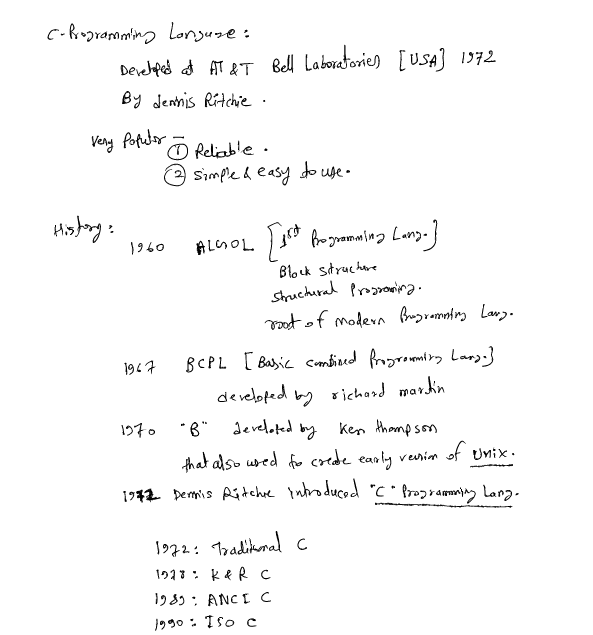 C-Programming Language :
Developed at AT & T Bell Laboratories [USA] 1972
By dennis Ritchie .
Very Popular –
① Reliable .
② Simple & easy to use .
History :
1960 ALGOL [1st Programming Lang.]
Block structure
structural Programing.
root of modern Programming Lang.
1967 BCPL [Basic combined Programming Lang.]
developed by richard martin
1970 "B" developed by Ken thompson
that also used to create early version of Unix .
1972 Dennis Ritchie introduced "C" Programming Lang.
1972 : Traditional C
1978 : K & R C
1989 : ANCI C
1990 : ISO C